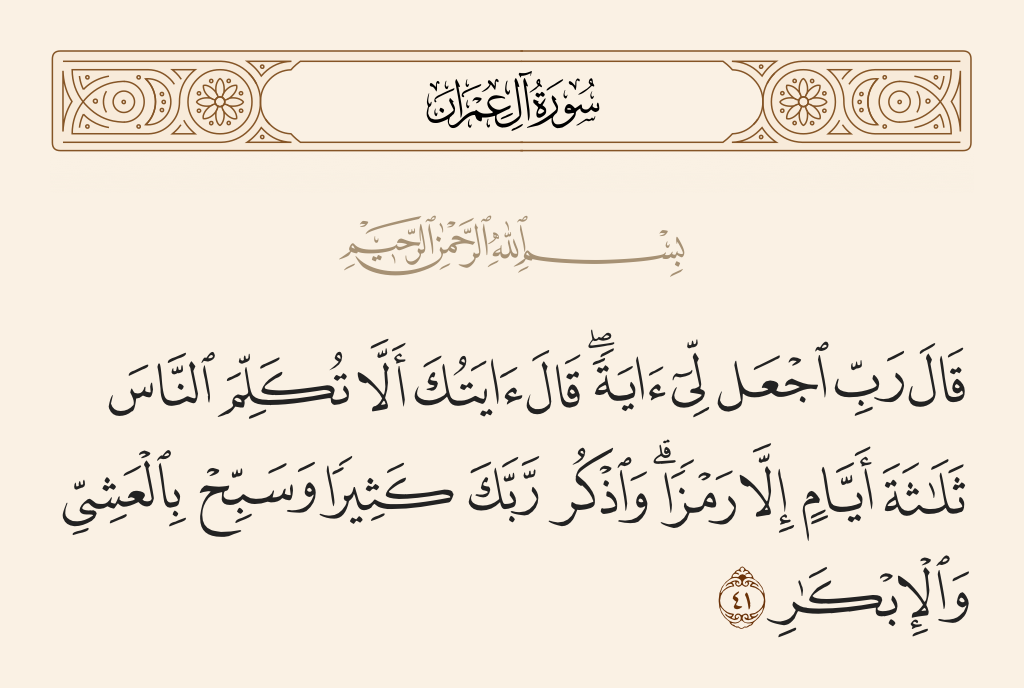 سُورَةُ آلِ عِمْرَان
بِسْمِ ٱللَّهِ ٱلرَّحْمَٰنِ ٱلرَّحِيمِ
قَالَ رَبِّ ٱجْعَل لِّىٓ ءَايَةً ۖ قَالَ ءَايَتُكَ أَلَّا تُكَلِّمَ ٱلنَّاسَ
ثَلَٰثَةَ أَيَّامٍ إِلَّا رَمْزًا ۗ وَٱذْكُر رَّبَّكَ كَثِيرًا وَسَبِّحْ بِٱلْعَشِىِّ
وَٱلْإِبْكَٰرِ ٤١